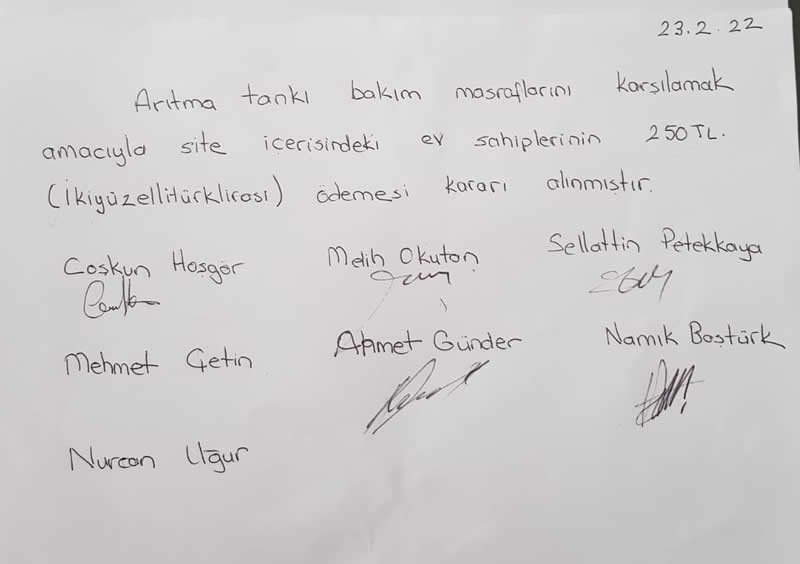 23.2.22
Arıtma tankı bakım masraflarını karşılamak
amacıyla site içerisindeki ev sahiplerinin 250TL.
(İkiyüzellitürklirası) ödemesi kararı alınmıştır.
Coşkun Hoşgör Melih Okuton Sellattin Petekkaya
Mehmet Çetin Ahmet Günder Namık Boştürk
Nurcan Uğur